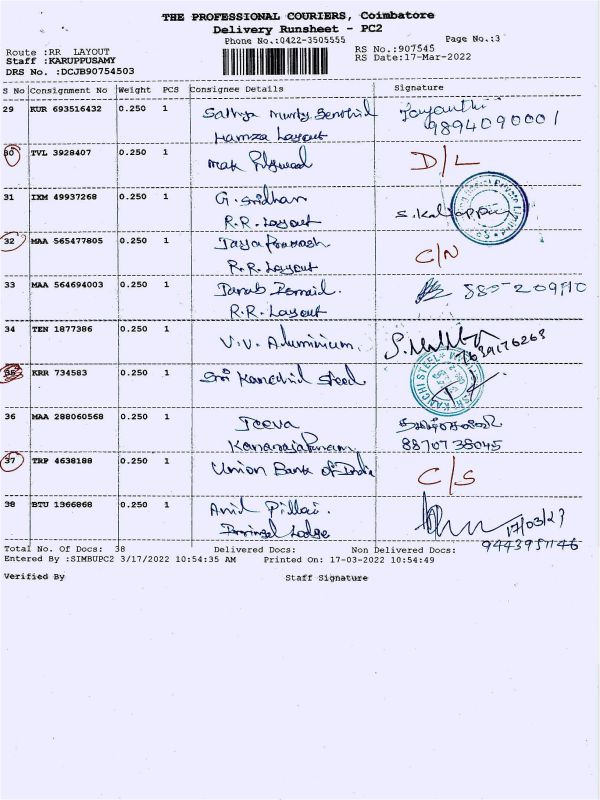 THE PROFESSIONAL COURIERS, Coimbatore
Delivery Runsheet - PC2
Phone No.:0422-3505555 Page No.:3
Route :RR LAYOUT RS No.:907545
Staff :KARUPPUSAMY RS Date:17-Mar-2022
DRS No. :DCJB90754503
S No Consignment No Weight PCS Consignee Details Signature
29 KUR 693516432 0.250 1 Sathya Murthy Senthil Jayanthi
Hamza Layout 9894090001
30 TVL 3928407 0.250 1 Mak Plywood D/L
31 IXM 49937268 0.250 1 G. Sridhar
R.R. Layout
32 MAA 565477805 0.250 1 Jaya Prakash C/N
R.R. Layout
33 MAA 564694003 0.250 1
R.R. Layout
34 TEN 1877386 0.250 1 V.V. Aluminium. 7639176263
35 KRR 734583 0.250 1 Sri Kanchid Steel
36 MAA 288060568 0.250 1 Jeeva
8870738045
37 TRP 4638188 0.250 1 Union Bank of India C/S
38 BTU 1366868 0.250 1 Anil Pillai.
Lodge 17/03/23
9443951146
Total No. Of Docs: 38 Delivered Docs: Non Delivered Docs:
Entered By :SIMBUPC2 3/17/2022 10:54:35 AM Printed On: 17-03-2022 10:54:49
Verified By Staff Signature